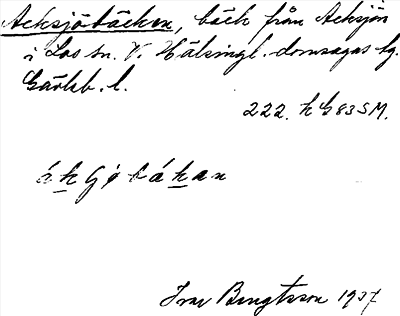 Acksjöbäcken, bäck från Acksjön
i Los sn. V. Hälsingl. domsagas tg.
Gävleb. l.
222. h G 83 S M.
Ivar Bengtsson 1937